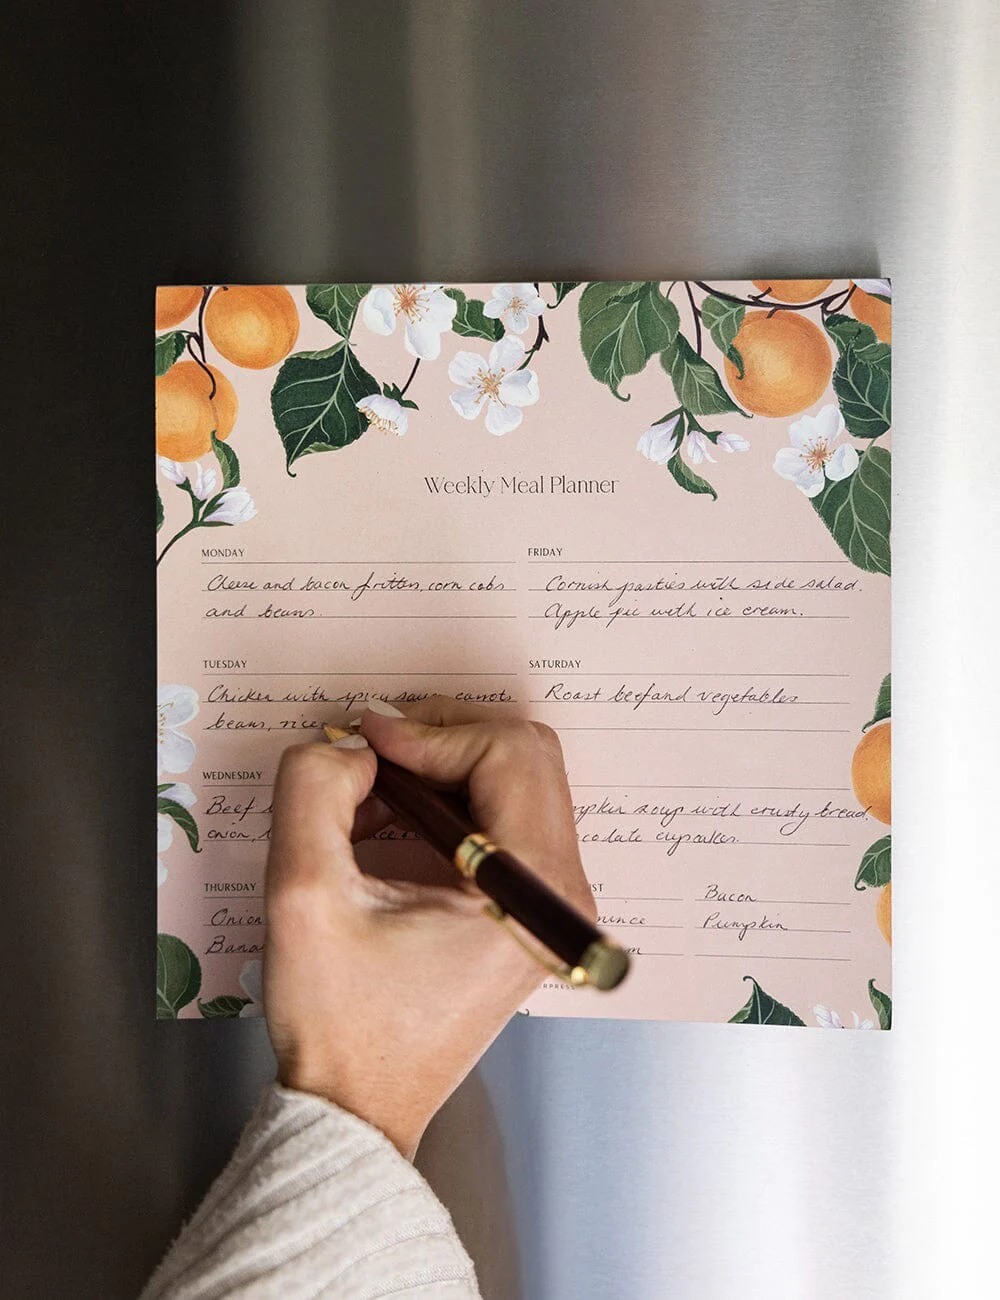 Weekly Meal Planner
MONDAY
Cheese and bacon fritters, corn cobs
and beans.
TUESDAY
Chicken with spicy sauce carrots
beans, rice
WEDNESDAY
Beef
onion,
THURSDAY
Onion
Bana
FRIDAY
Cornish pasties with side salad.
Apple pie with ice cream.
SATURDAY
Roast beef and vegetables
mpkin soup with crusty bread.
ocolate cupcakes.
ST
Bacon
mince
Pumpkin